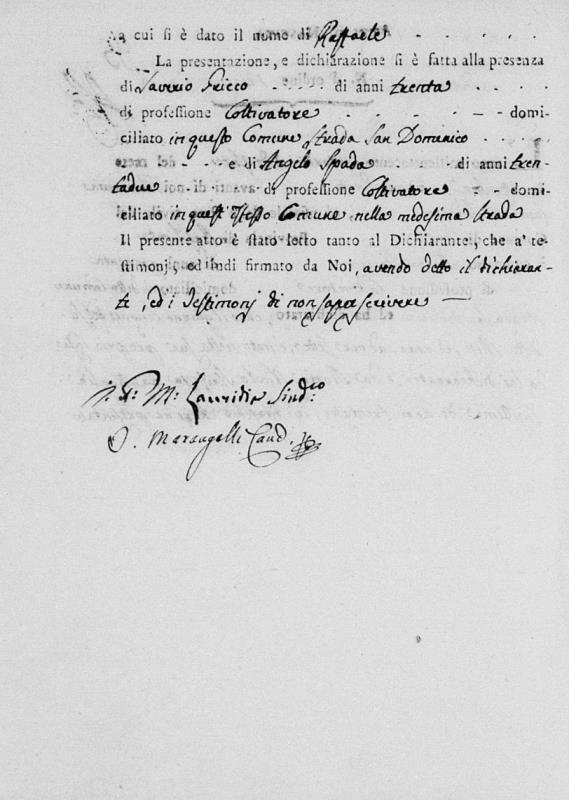 a cui si è dato il nome di Raffaele
La presentazione, e dichiarazione si è fatta alla presenza
di Saverio Fricco di anni trenta
di professione Coltivatore domi-
ciliato in questo Comune Strada San Domenico
e di Angelo Spada di anni tren-
tadue di professione Coltivatore domi-
ciliato in quest'istesso Comune nella medesima strada
Il presente atto è stato letto tanto al Dichiarante, che a' te-
stimonj, ed indi firmato da Noi, avendo detto il dichiaran-
te, ed i Testimonj di non saper scrivere —
Sind:co
Marangelli Canc.